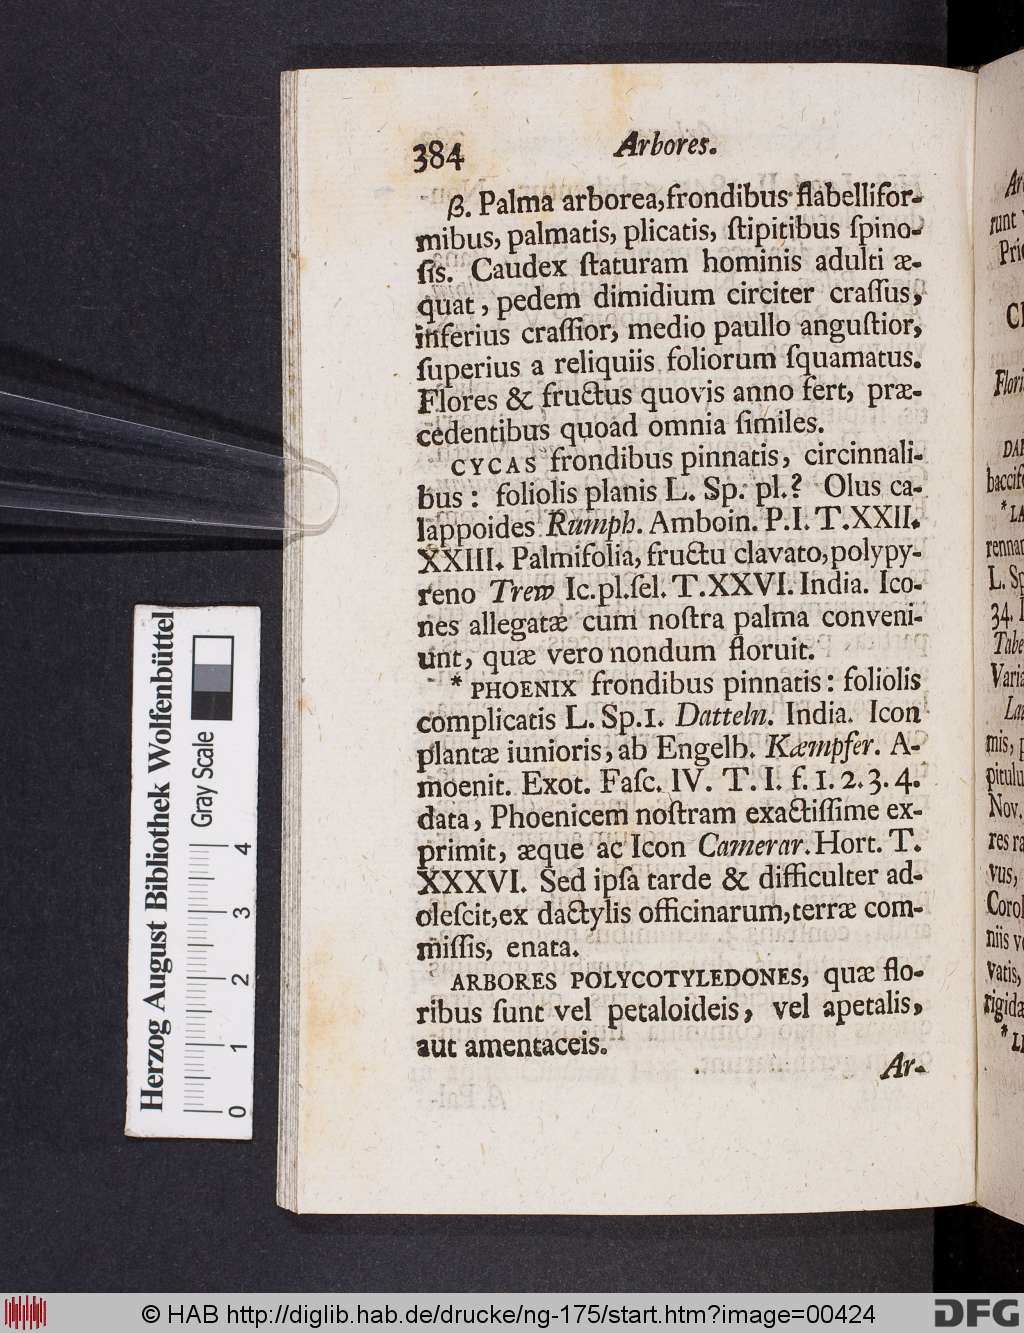 384 Arbores.
β. Palma arborea, frondibus flabellifor-
mibus, palmatis, plicatis, ſtipitibus ſpino-
ſis. Caudex ſtaturam hominis adulti æ-
quat, pedem dimidium circiter craſſus,
inferius craſſior, medio paullo anguſtior,
ſuperius a reliquiis foliorum ſquamatus.
Flores & fructus quovis anno fert, præ-
cedentibus quoad omnia ſimiles.
CYCAS frondibus pinnatis, circinnali-
bus: foliolis planis L. Sp. pl.? Olus ca-
lappoides Rumph. Amboin. P.I. T.XXII.
XXIII. Palmifolia, fructu clavato, polypy-
reno Trew Ic.pl.ſel. T.XXVI. India. Ico-
nes allegatæ cum noſtra palma conveni-
unt, quæ vero nondum floruit.
* PHOENIX frondibus pinnatis: foliolis
complicatis L. Sp.1. Datteln. India. Icon
plantæ iunioris, ab Engelb. Kæmpfer. A-
moenit. Exot. Faſc. IV. T. I. f. 1. 2. 3. 4.
data, Phoenicem noſtram exactiſſime ex-
primit, æque ac Icon Camerar. Hort. T.
XXXVI. Sed ipſa tarde & difficulter ad-
oleſcit, ex dactylis officinarum, terræ com-
miſſis, enata.
ARBORES POLYCOTYLEDONES, quæ flo-
ribus ſunt vel petaloideis, vel apetalis,
aut amentaceis.
Ar-
Ar
runt
Flori
bacciſe
rennan
L. Sp
34.
Tabe
Varia
mis,
pitulu
Nov.
res ra
vus,
Corol
niis ve
vatis,
rigida
Herzog August Bibliothek Wolfenbüttel
Gray Scale
0 1 2 3 4
© HAB http://diglib.hab.de/drucke/ng-175/start.htm?image=00424
DFG